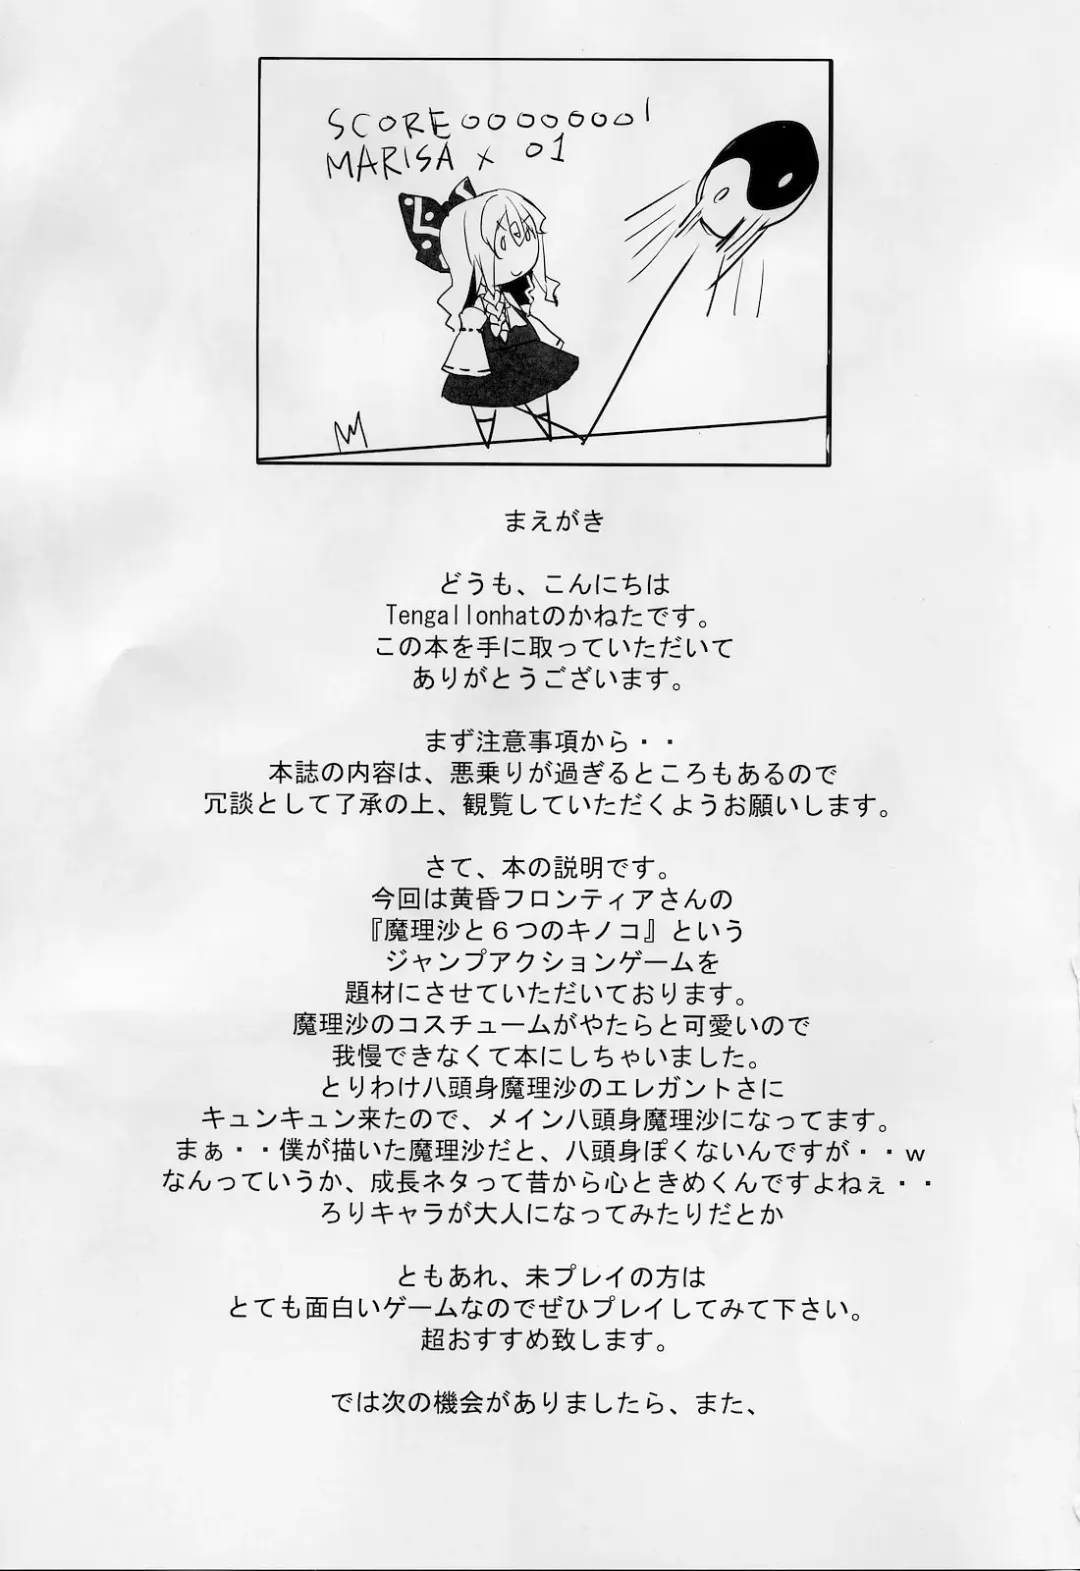 SCORE 00000001
MARISA × 01
まえがき
どうも、こんにちは
Tengallonhatのかねたです。
この本を手に取っていただいて
ありがとうございます。
まず注意事項から・・
本誌の内容は、悪乗りが過ぎるところもあるので
冗談として了承の上、観覧していただくようお願いします。
さて、本の説明です。
今回は黄昏フロンティアさんの
『魔理沙と６つのキノコ』という
ジャンプアクションゲームを
題材にさせていただいております。
魔理沙のコスチュームがやたらと可愛いので
我慢できなくて本にしちゃいました。
とりわけ八頭身魔理沙のエレガントさに
キュンキュン来たので、メイン八頭身魔理沙になってます。
まぁ・・僕が描いた魔理沙だと、八頭身ぽくないんですが・・ｗ
なんっていうか、成長ネタって昔から心ときめくんですよねぇ・・
ろりキャラが大人になってみたりだとか
ともあれ、未プレイの方は
とても面白いゲームなのでぜひプレイしてみて下さい。
超おすすめ致します。
では次の機会がありましたら、また、